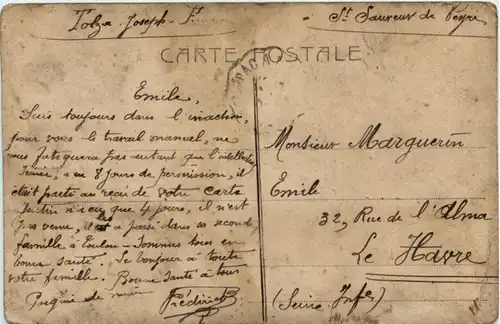 Tolza Joseph F.
St Sauveur de Peyre
CARTE POSTALE
Emile,
Suis toujours dans l'inaction,
pour vous le travail manuel, ne
vous fatiguera pas autant que l'intellectuel
a eu 8 jours de permission, il
était parti au reçu de votre carte
Justin n'a eu que 4 jours, il n'est
pas venu, il les a passé dans sa second
famille à Toulon - Sommes tous en
bonne santé. Le bonjour à toute
votre famille. Bonne santé à tous
Poignée de main Frédéric
Monsieur Marguerin
Emile
32, Rue de l'Alma
Le Havre
(Seine Infre)